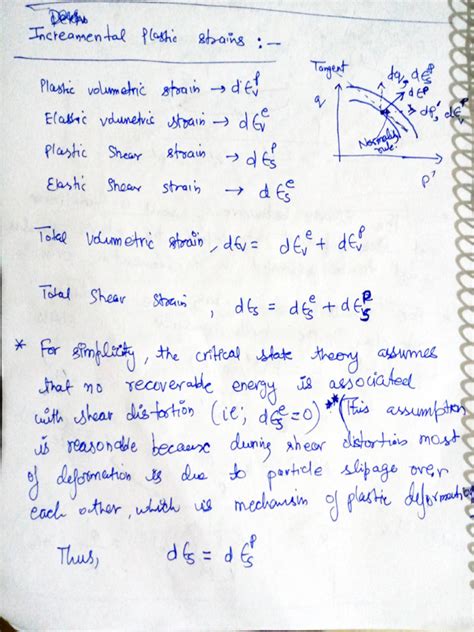 Increamental Plastic strains :-
Tangent
dq, dЄₛᵖ
dЄᵖ
q
dp', dЄᵥᵖ
Normality rule.
p'
Plastic volumetric strain → dЄᵥᵖ
Elastic volumetric strain → dЄᵥᵉ
Plastic Shear strain → dЄₛᵖ
Elastic Shear strain → dЄₛᵉ
Total Volumetric strain, dЄᵥ = dЄᵥᵉ + dЄᵥᵖ
Total Shear Strain, dЄₛ = dЄₛᵉ + dЄₛᵖ
* For simplicity, the critical state theory assumes
that no recoverable energy is associated
with shear distortion (ie; dЄₛᵉ=0) ** (This assumption
is reasonable because during shear distortion most
of deformation is due to particle slipage over
each other, which is mechanism of plastic deformation
Thus, dЄₛ = dЄₛᵖ